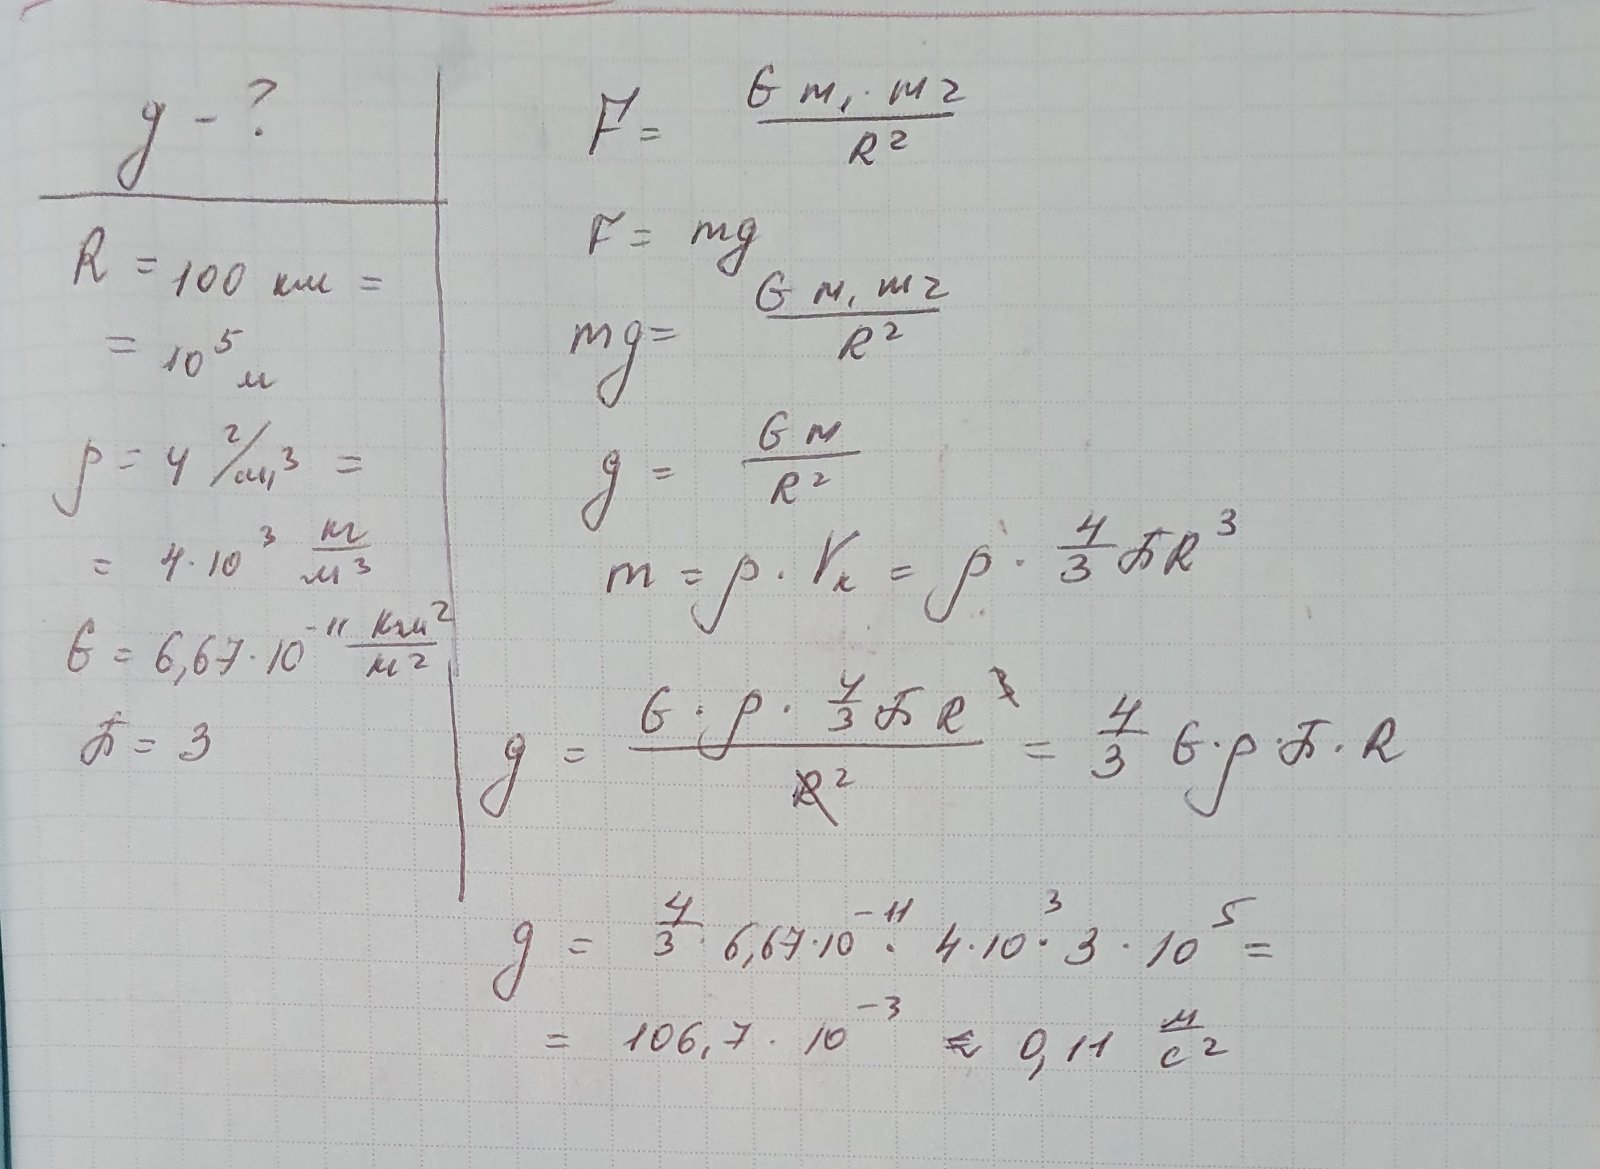 g - ?
R = 100 км =
= 10⁵ м
ρ = 4 г/см³ =
= 4·10³ кг/м³
G = 6,67·10⁻¹¹ кгм²/м²
π = 3
F = G m₁·m₂/R²
F = mg
mg = G m₁ m₂/R²
g = G м/R²
m = ρ·Vк = ρ·4/3 πR³
g = G·ρ·4/3 πR³/R² = 4/3 G·ρ·π·R
g = 4/3·6,67·10⁻¹¹·4·10³·3·10⁵ =
= 106,7·10⁻³ ≈ 0,11 м/с²